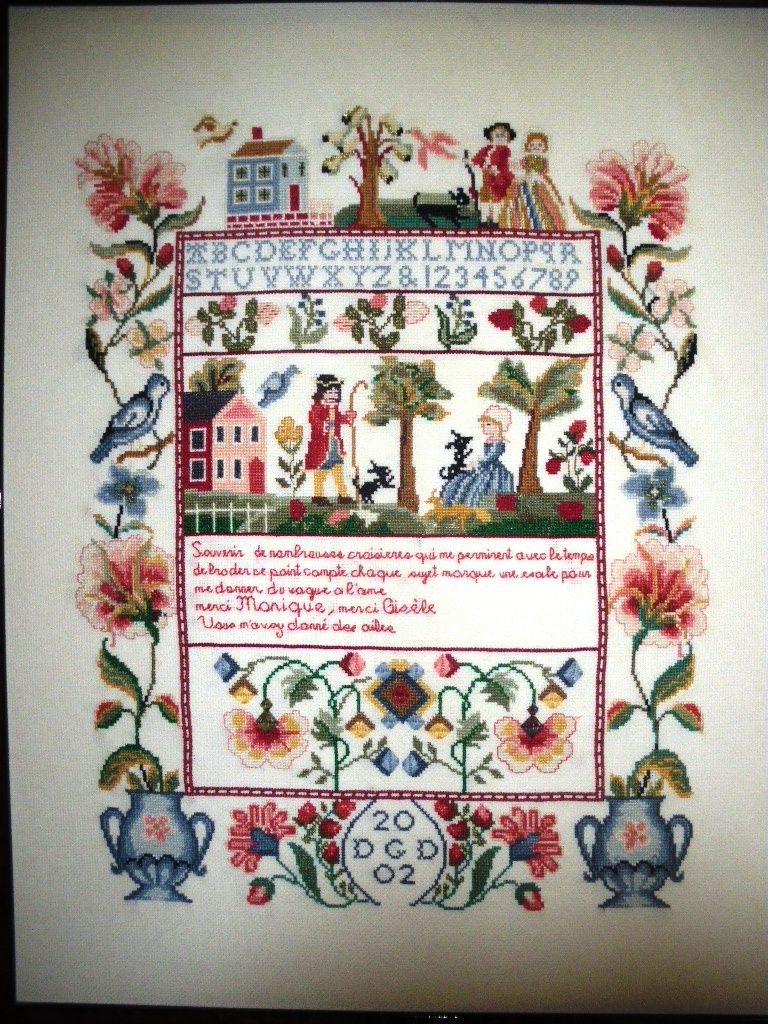 ABCDEFGHIJKLMNOPQR
STUVWXYZ&123456789
Souvenir de nombreuses croisieres qui me permirent avec le temps
de broder ce point compte chaque sujet marque une escale pour
me donner du vague a l'ame
merci Monique, merci Gisèle
Vous m'avez donné des ailes
20
DGD
02